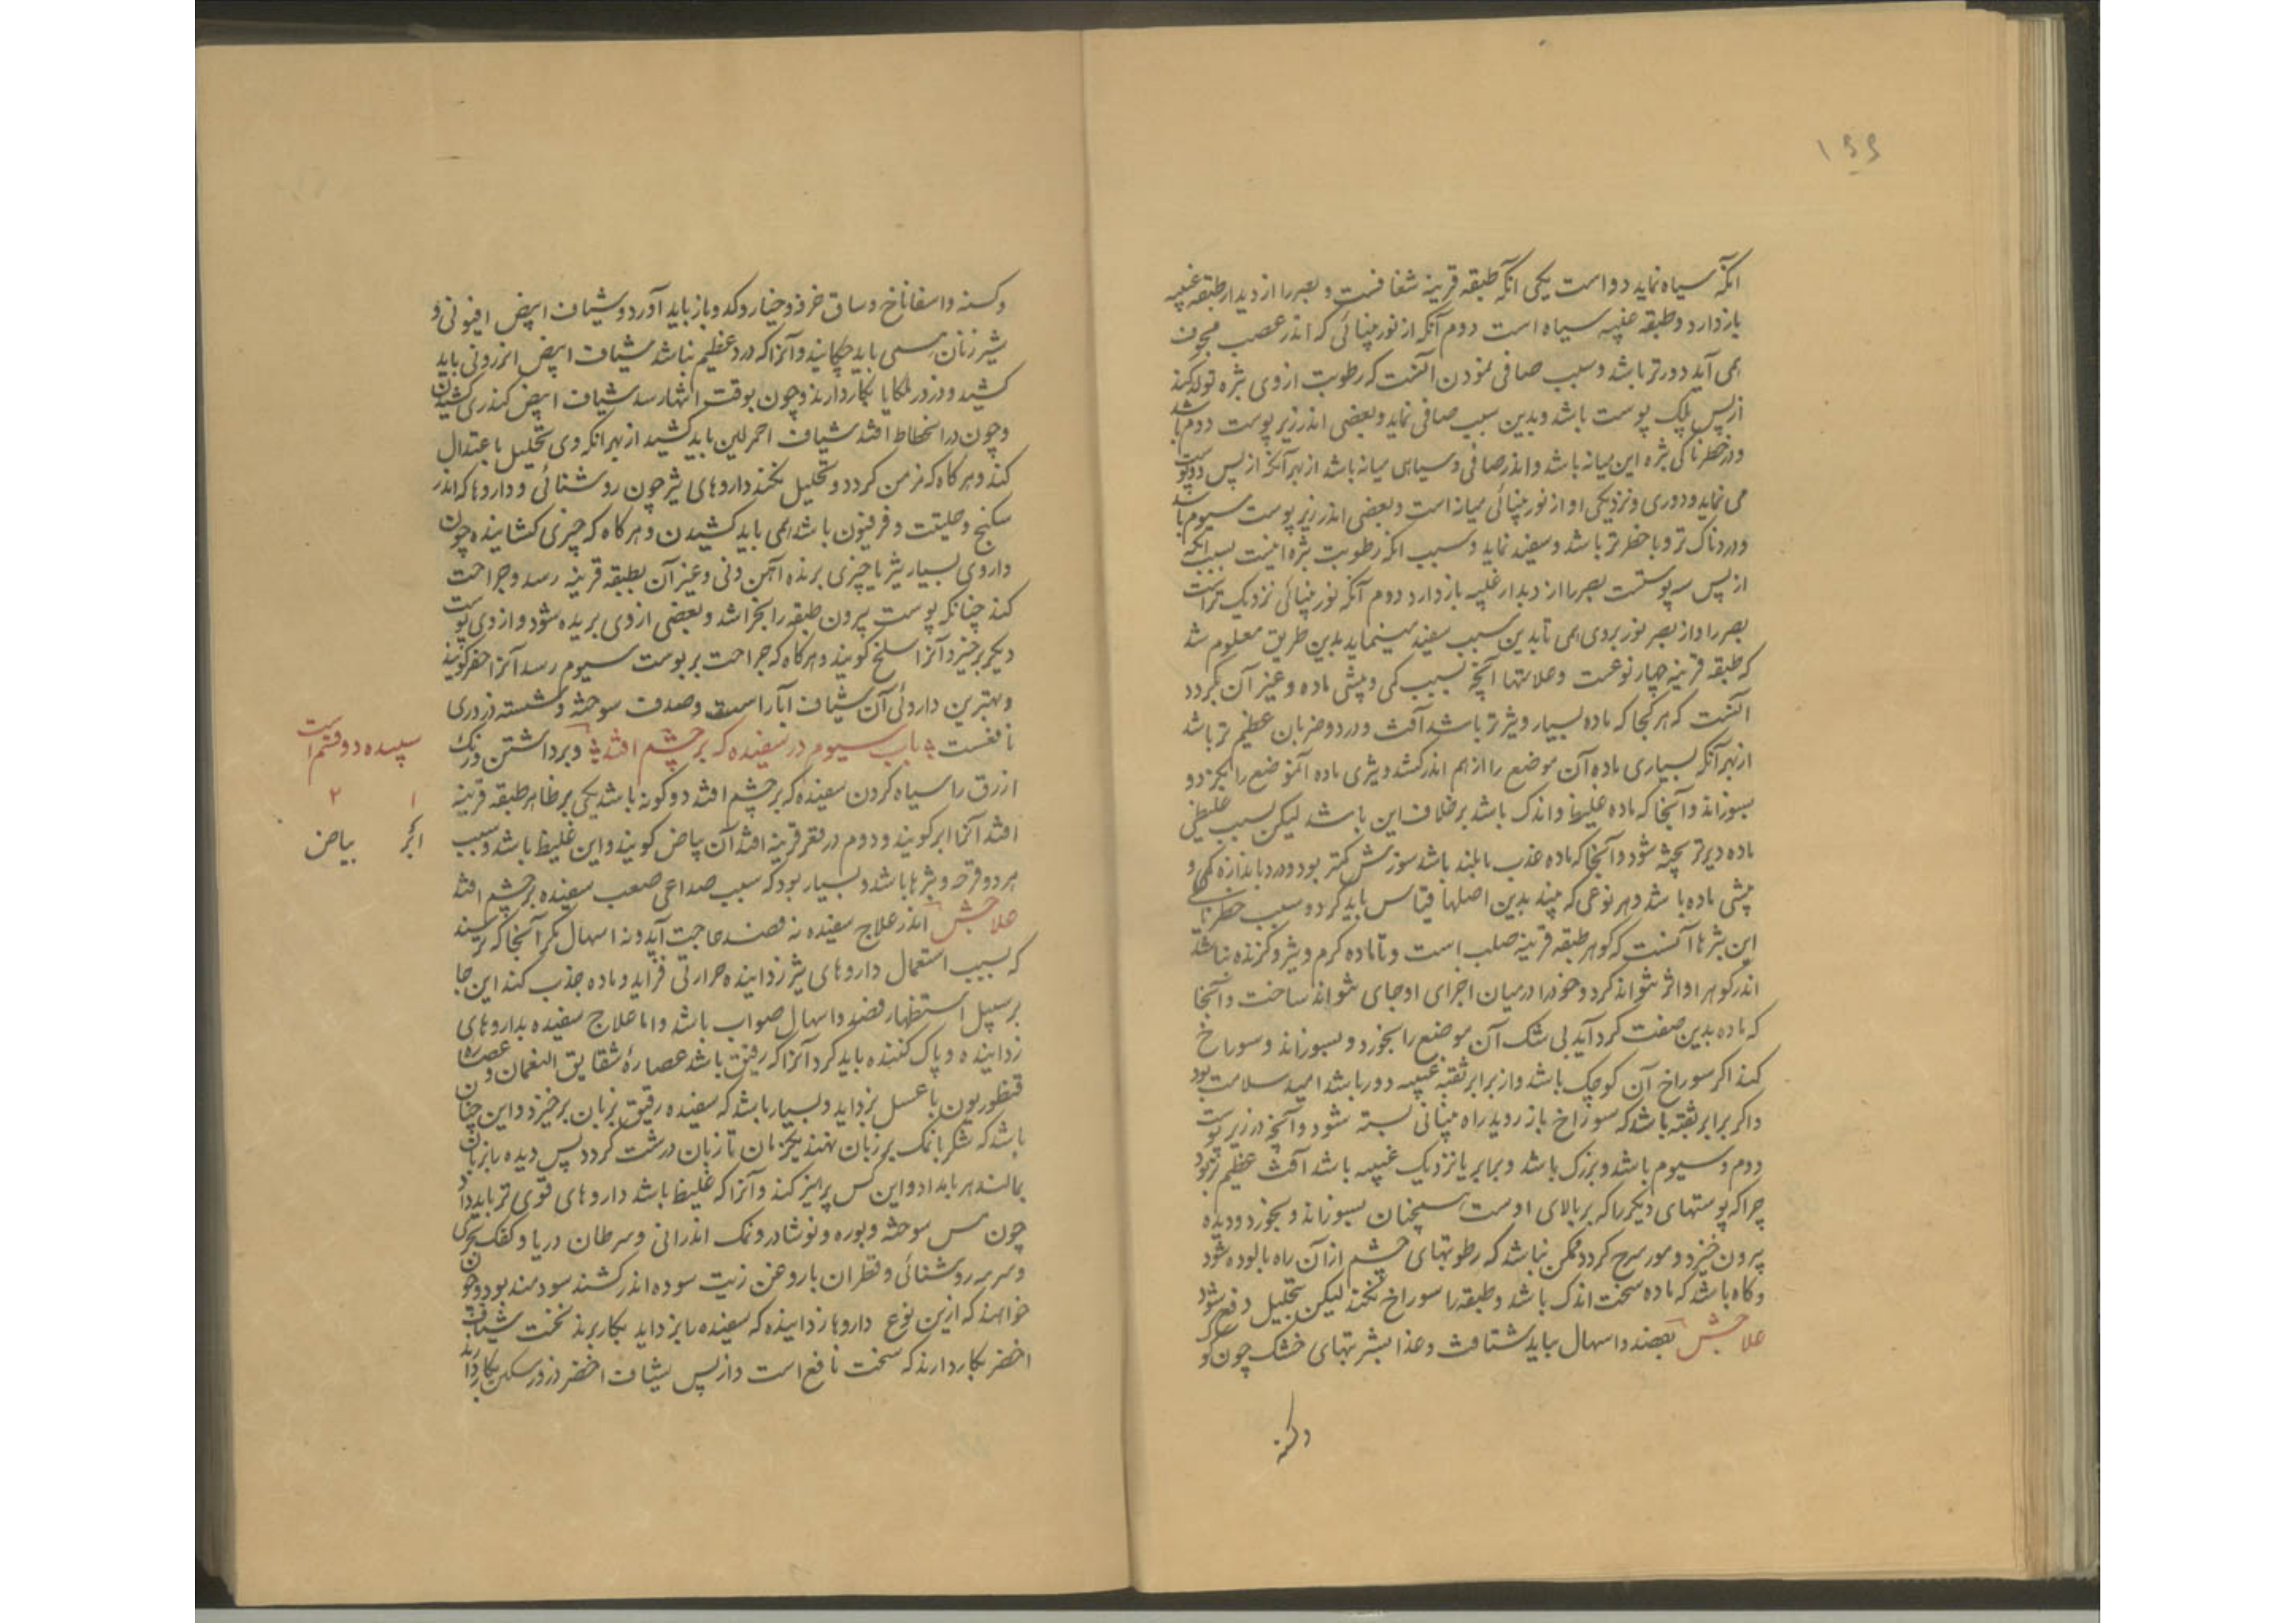 ۱۶۶
انکه سیاه نماید دو است یکی انکه طبقه قرینه شفافست و بصر را از دیدار طبقه عنبیه
باز دارد و طبقه عنبیه سیاه است دوم آنکه از نور بینائی که اندر عصب مجوف
همی آید دورتر باشد و سبب صافی نمودن آنست که رطوبت از وی بثره تولد کند
از پس یک پوست باشد و بدین سبب صافی نماید و بعضی اندر زیر پوست دوم باشد
و در خطرناکی بثره این میانه باشد و اندر صافی و سیاهی میانه باشد از بهر آنکه از پس دو پوست
می نماید و دوری و نزدیکی او از نور بینائی میانه است و بعضی اندر زیر پوست سیوم باشد
و دردناک تر و با خطر تر باشد و سفید نماید و سبب انکه رطوبت بثره اینست بسبب آنکه
از پس سه پوستست بصر را از دیدار عنبیه باز دارد دوم آنکه نور بینائی نزدیک تر است
بصر را و از بصر نور بر وی همی تابد بدین سبب سفید مینماید بدین طریق معلوم شد
که طبقه قرینه چهار نوعست و علامتها آنچه بسبب کمی و بیشی ماده و غیر آن بکردد
آنست که هر کجا که ماده بسیار و تیزتر باشد آفت و درد و ضربان عظیم تر باشد
از بهر آنکه بسیاری ماده آن موضع را از هم اندر کشد و تیزی ماده آنموضع را بخورد و
بسوزاند و آنجا که ماده غلیظ و اندک باشد برخلاف این باشد لیکن بسبب غلیظی
ماده دیرتر پخته شود و آنجا که ماده عذب باشد سوزش کمتر بود و درد باندازه کمی و
بیشی ماده باشد و هر نوعی که بیند بدین اصلها قیاس باید کرد و سبب خطرناکی
این بثرها آنست که کوهر طبقه قرینه صلب است و تا ماده کرم و تیز و کزنده نباشد
اندر کوهر او اثر نتواند کرد و خود را در میان اجزای او جای نتواند ساخت و آنجا
که ماده بدین صفت کرد آید بی شک آن موضع را بخورد و بسوزاند و سوراخ
کند اکر سوراخ آن کوچک باشد و از برابر ثقبه عنبیه دور باشد امید سلامت بود
و اکر برابر ثقبه باشد که سوراخ باز روید راه بینائی بسته شود و آنچه در زیر پوست
دوم و سیوم باشد و بزرک باشد و برابر یا نزدیک عنبیه باشد آفت عظیم تر بود
چرا که پوستهای دیکر را که بر بالای اوست همچنان بسوزاند و بخورد و دیده
بیرون خیزد و مورسرج کردد ممکن نباشد که رطوبتهای چشم از آن راه پالوده شود
و کاه باشد که ماده سخت اندک باشد و طبقه را سوراخ نکند لیکن بتحلیل دفع شود
علاجش بفصد و اسهال بباید شتافت و غذا بشربتهای خشک چون کو
وکسنه
وکسنه و اسفاناخ و ساق خرفه و خیار و کدو باز باید آورد و شیاف ابیض افیونی و
شیر زنان همی باید چکانید و آنرا که درد عظیم نباشد شیاف ابیض انزروتی باید
کشید و ذرور ملکایا بکار دارند و چون بوقت انتها رسد شیاف ابیض کندری کشیدن
و چون در انحطاط افتد شیاف احمر لین باید کشید از بهر انکه وی تحلیل باعتدال
کند و هر کاه که مزمن کردد و تحلیل نکند داروهای تیز چون روشنائی و داروها که اندر
سکبنج و حلتیت و فرفیون باشد همی باید کشیدن و هر کاه که چیزی کشاینده چون
داروی بسیار تیز یا چیزی برنده آهن و نی و غیر آن بطبقه قرینه رسد و جراحت
کند چنانکه پوست بیرون طبقه را بخراشد و بعضی از وی بریده شود و از وی پوست
دیکر برخیزد آنرا سلخ کویند و هرکاه که جراحت بر پوست سیوم رسد آنرا حفر کویند
و بهترین داروئی آن شیاف آبار است و صدف سوخته و شسته ذروری
نافعست باب سیوم در سفیده که بر چشم افتد و برداشتن و رنک
ازرق را سیاه کردن سفیده که بر چشم افتد دو کونه باشد یکی بر ظاهر طبقه قرینه
افتد آنرا ابر کویند و دوم در قعر قرینه افتد آن بیاض کویند و این غلیظ باشد و سبب
هر دو قرحه و بثرها باشد و بسیار بود که سبب صداعی صعب سفیده بر چشم افتد
علاجش اندر علاج سفیده نه فصد حاجت آید و نه اسهال مکر آنجا که ترسند
که بسبب استعمال داروهای تیز زداینده حرارتی فزاید و ماده جذب کند این جا
بر سبیل استظهار فصد و اسهال صواب باشد و اما علاج سفیده بداروهای
زداینده و پاک کننده باید کرد آنرا که رقیق باشد عصارهٔ شقایق النعمان و عصاره
قنطوریون با عسل بزداید و بسیار باشد که سفیده رقیق بزبان برخیزد و این چنان
باشد که شکر یا نمک بر زبان نهند یکزمان تا زبان درشت کردد پس دیده را بزبان
بمالند هر بامداد و این کس پرهیز کند و آنرا که غلیظ باشد داروهای قوی تر باید داد
چون مس سوخته و بوره و نوشادر و نمک اندرانی و سرطان دریا و کفک بحری
و سرمه روشنائی و قطران با روغن زیت سوده اندر کشند سودمند بود و چون
خواهند که ازین نوع داروها زداینده که سفیده را بزداید بکار برند نخست شیاف
اخضر بکار دارند که سخت نافع است و از پس شیاف اخضر ذرور مسکن بکار دارند
سپیده دو قسم است
۱ ۲
ابر بیاض